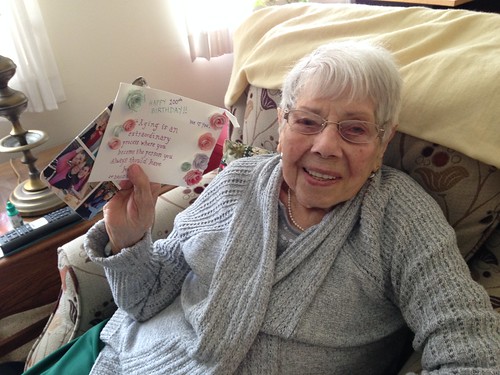 HAPPY 100th
BIRTHDAY!!
Aging is an
extraordinary
process where you
become the person you
always should have